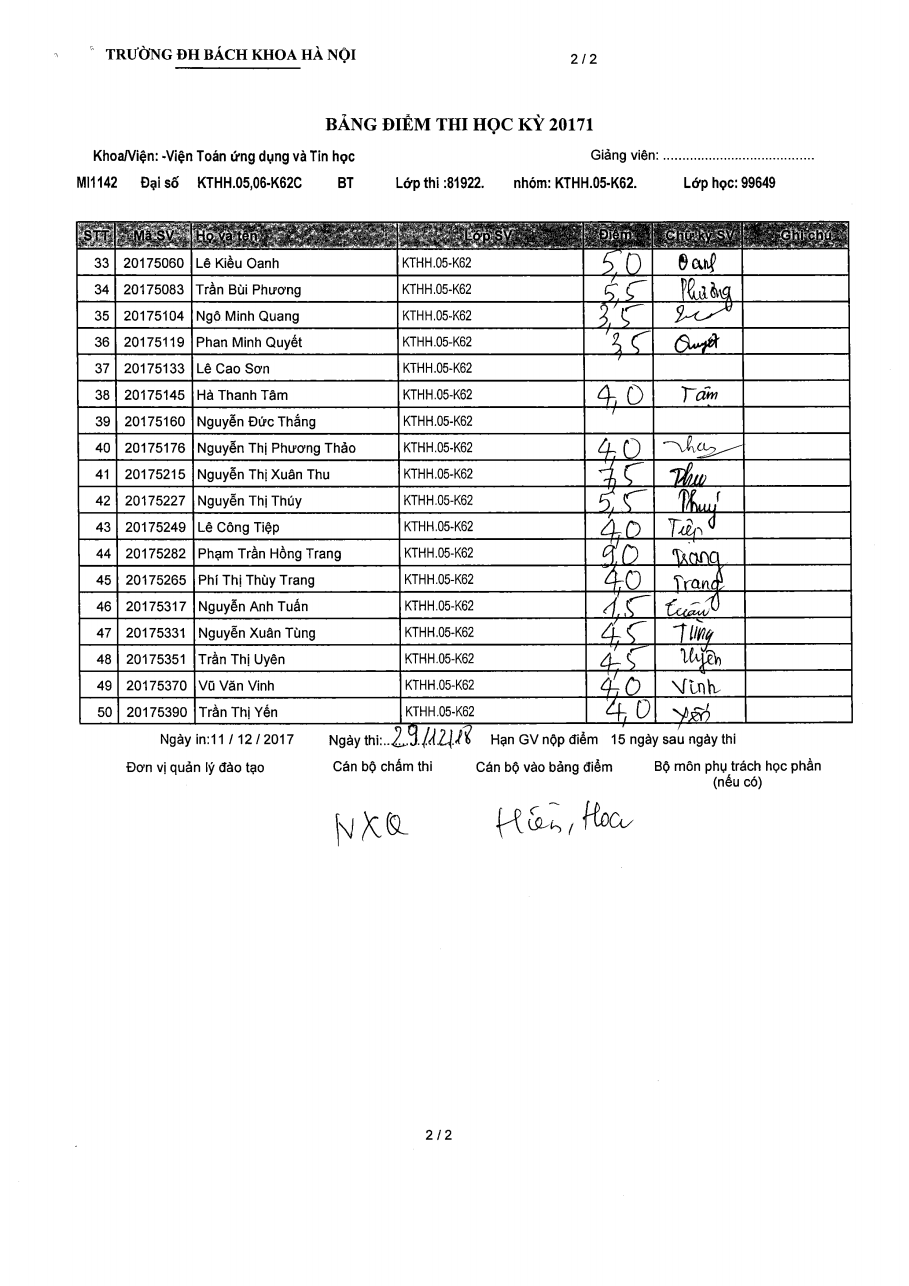 TRƯỜNG ĐH BÁCH KHOA HÀ NỘI 2 / 2
BẢNG ĐIỂM THI HỌC KỲ 20171
Khoa/Viện: -Viện Toán ứng dụng và Tin học Giảng viên: ........................................
MI1142 Đại số KTHH.05,06-K62C BT Lớp thi :81922. nhóm: KTHH.05-K62. Lớp học: 99649
STT Mã SV Họ và tên Lớp SV Điểm Chữ ký SV Ghi chú
33 20175060 Lê Kiều Oanh KTHH.05-K62 5,0 Oanh
34 20175083 Trần Bùi Phương KTHH.05-K62 5,5 Phương
35 20175104 Ngô Minh Quang KTHH.05-K62 3,5
36 20175119 Phan Minh Quyết KTHH.05-K62 3,5 Quyết
37 20175133 Lê Cao Sơn KTHH.05-K62
38 20175145 Hà Thanh Tâm KTHH.05-K62 4,0 Tâm
39 20175160 Nguyễn Đức Thắng KTHH.05-K62
40 20175176 Nguyễn Thị Phương Thảo KTHH.05-K62 4,0 Thảo
41 20175215 Nguyễn Thị Xuân Thu KTHH.05-K62 7,5 Thu
42 20175227 Nguyễn Thị Thúy KTHH.05-K62 5,5 Thuý
43 20175249 Lê Công Tiệp KTHH.05-K62 4,0 Tiệp
44 20175282 Phạm Trần Hồng Trang KTHH.05-K62 9,0 Trang
45 20175265 Phí Thị Thùy Trang KTHH.05-K62 4,0 Trang
46 20175317 Nguyễn Anh Tuấn KTHH.05-K62 1,5 Tuấn
47 20175331 Nguyễn Xuân Tùng KTHH.05-K62 4,5 Tùng
48 20175351 Trần Thị Uyên KTHH.05-K62 4,5 Uyên
49 20175370 Vũ Văn Vinh KTHH.05-K62 4,0 Vinh
50 20175390 Trần Thị Yến KTHH.05-K62 4,0 Yến
Ngày in:11 / 12 / 2017 Ngày thi:...29/12/18 Hạn GV nộp điểm 15 ngày sau ngày thi
Đơn vị quản lý đào tạo Cán bộ chấm thi Cán bộ vào bảng điểm Bộ môn phụ trách học phần
(nếu có)
NXQ Hiền, Hoa
2 / 2